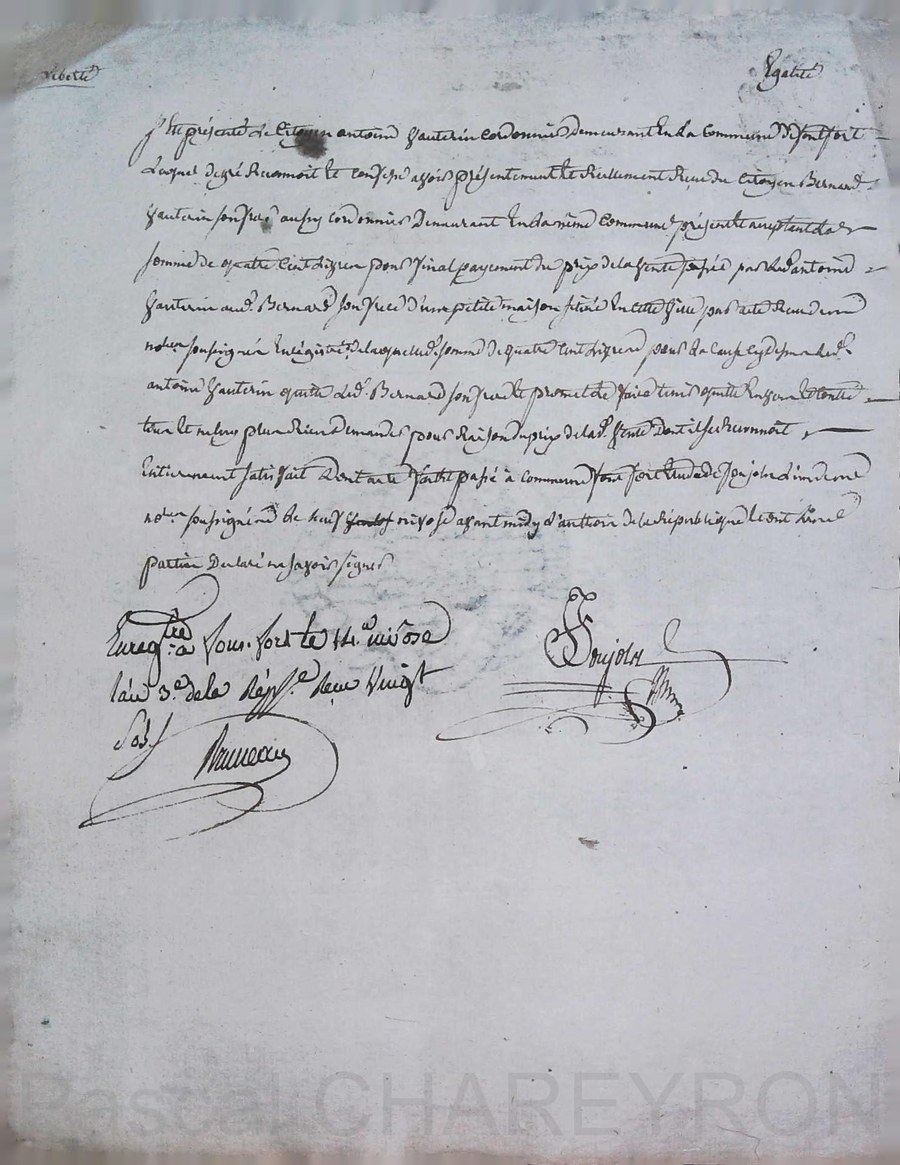 Liberté Egalité
S'est présenté le Citoyen antoine hauterin cordonnier demeurant En La Commune de fonsfort
Lequel de gré Reconnoit et confesse avoir présentement et Réellement Receu du Citoyen Bernard
hauterin son frere aussy cordonnier Demeurant En La même Commune présent et acceptant La
somme de quatre Cent Livres pour final payement du prix de la Vente passée par led. antoine
hauterin aud. Bernard son frere d'une petite maison située En cette Ville par acte Receu de
notre soussigné Enregistré de laquelle somme de quatre Cent Livres pour La Cause cy dessus led.
antoine hauterin quitte Led. Bernard son frere et promet de faire tenir quitte Envers et Contre
tous et ne luy plus Rien Demander pour Raison du prix de lad. Vente Dont il se Reconnoit
Entierement satisfait Dont acte fait et passé à commune fons fort Etude de Soujoln
notre soussigné Le neuf nivose avant midy d'an troix de la République
parties Declaré ne savoir signer
Enregtré a fons-fort le 14. nivose
l'an 3.e de la Répq.e Recu Vingt
Sols Bruneau
Soujoln
Pascal CHAREYRON